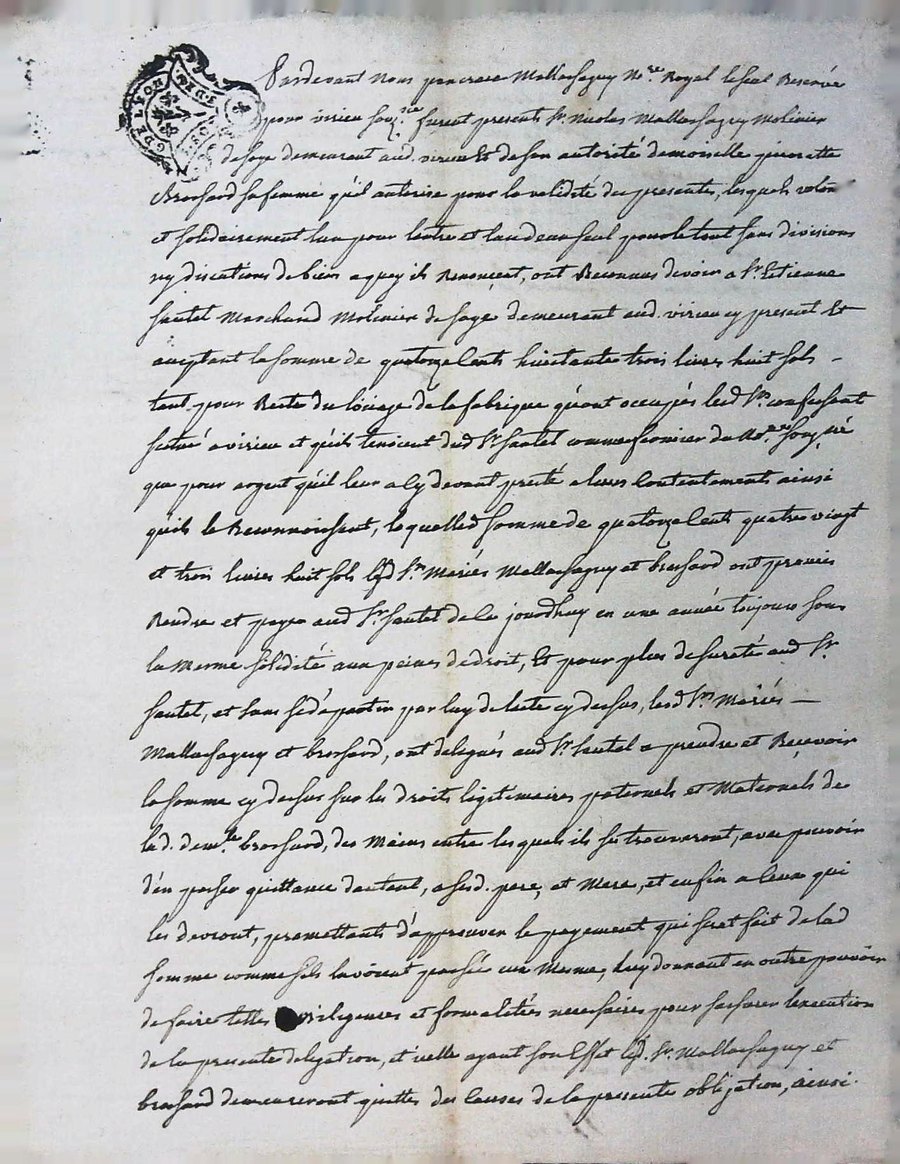 G. DE LYON
Pardevant Nous pancrace Mallassagny No.re Royal le seul Reservé
pour virieu souz.né furent presents Sr. Nicolas Mallassagny Molinier
de soye demeurant aud. virieu Et de son autorité demoiselle pierrette
Brossard sa femme qu'il autorise pour la validité des presentes, lesquels
et solidairement l'un pour l'autre et l'un d'eux seul pour le tout sans divisions
ny discutions de bien a quoy ils Renoncent, ont Reconnus devoir a Sr. Etienne
sautel Marchand Molinier de soye demeurant aud. virieu cy present Et
aceptant la somme de quatorze cents huictante trois livres huit sols –
tant pour Reste du loüage de la fabrique qu'ont occupés lesd. Srs. confessant
scitué a virieu et qu'ils tenoient dud Sr sautel comme fermier du souz.né
que pour argent qu'il leur a cy devant preté a leurs Contentements ainsi
qu'ils le Reconnoissent, laquelled somme de quatorze cents quatre vingt
et trois livres huit sols lesd Srs. Mariés Mallassagny et brossard ont promis
Rendre et payer aud Sr sautel de ce jourdhuy en une année toujours sous
la Mesme solidité aux peines de droit, Et pour plus de sureté aud Sr
sautel, et sans se départir par luy de l'acte cy dessus, lesd Srs. Mariés –
Mallassagny et brossard, ont delegués aud Sr. sautel a prendre et Recevoir
la somme cy dessus sur les droits legitimaires paternels et Maternels de
lad. dem.lle brossard, des Mains entre lesquels ils se trouveront, avec pouvoir
d'en passer quittance d'autant, a sesd. pere, et Mere, et enfin a ceux qui
les devront, promettants d'approuver le payement qui serat fait de lad
somme comme s'ils l'avoient passée eux Mesme, luy donnant en outre pouvoir
de faire telles diligences et formalitées necessaires pour l'execution
de la presente delegation, et icelle ayant son Effet lesd. Sr. Mallassagny et
brossard demeureront quittes des causes de la presente obligation, ainsi.